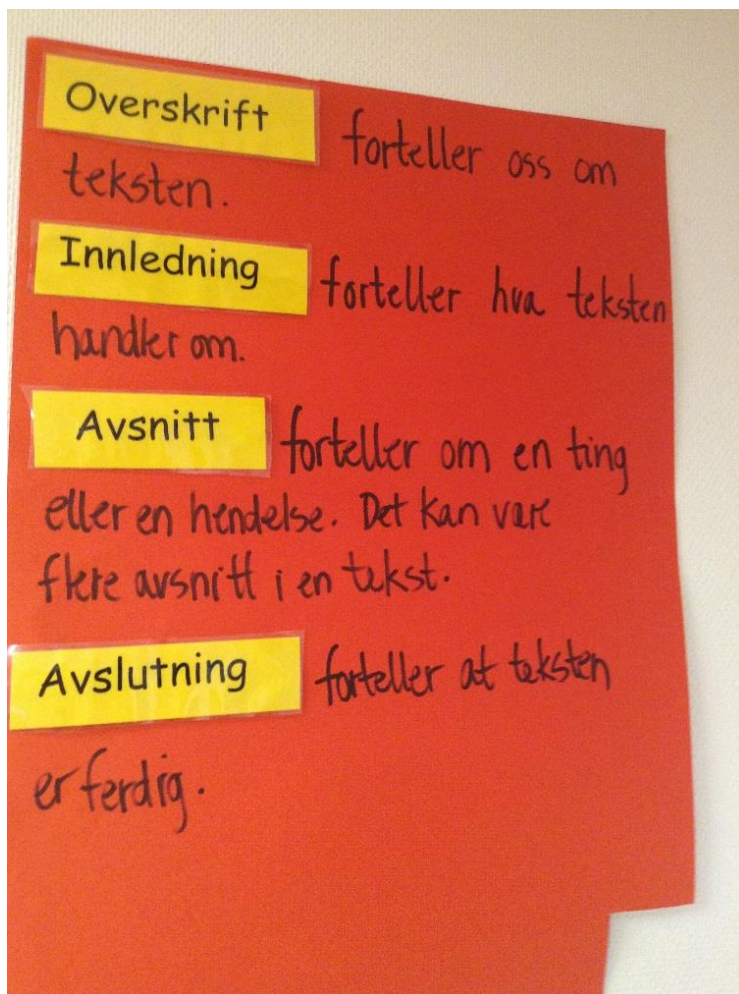 Overskrift forteller oss om
teksten.
Innledning forteller hva teksten
handler om.
Avsnitt forteller om en ting
eller en hendelse. Det kan være
flere avsnitt i en tekst.
Avslutning forteller at teksten
er ferdig.